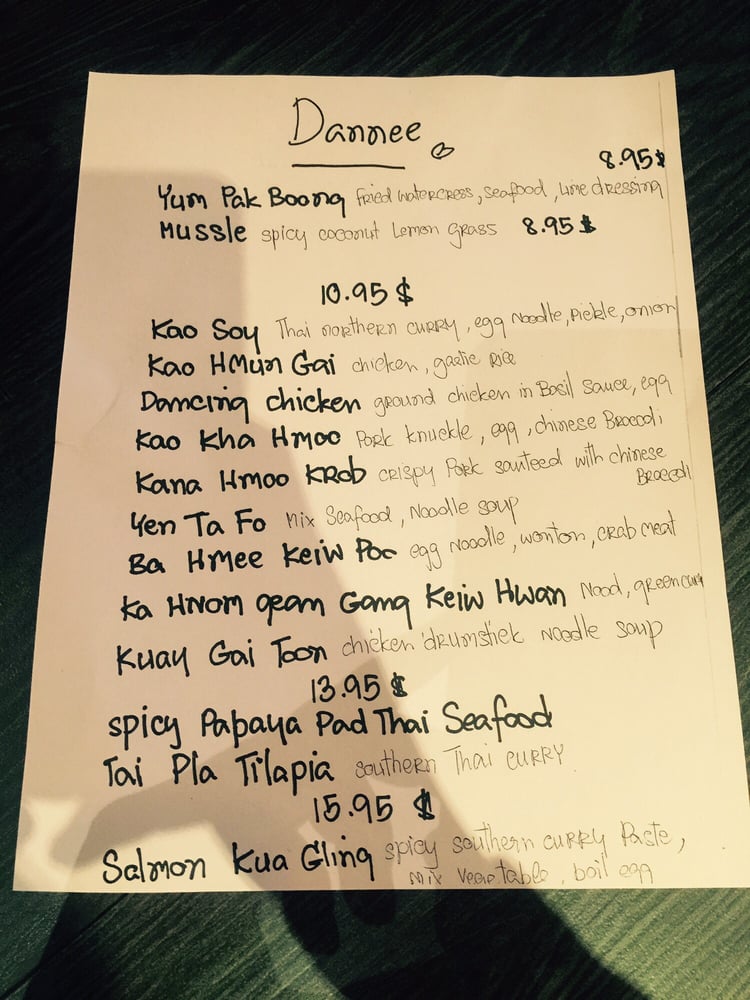 Dannee
8.95$
Yum Pak Boong fried watercress, seafood, lime dressing
Mussle spicy coconut Lemon grass 8.95 $
10.95 $
Kao Soy Thai northern curry, egg Noodle, pickle, onion
Kao HMun Gai chicken, garlic Rice
Dancing chicken ground chicken in Basil sauce, egg
Kao Kha Hmoo Pork knuckle, egg, chinese Broccoli
Kana Hmoo KRob crispy Pork sauteed with chinese
Broccoli
Yen Ta Fo Mix Seafood, Noodle soup
Ba HMee Keiw Poo egg Noodle, wonton, crab meat
Ka HNom Gang Keiw Hwan Nood, green
Kuay Gai Toon chicken drumstick Noodle soup
13.95 $
spicy Papaya Pad Thai Seafood
Tai Pla Tilapia southern Thai CURRY
15.95 $
Salmon Kua Gling spicy southern curry Paste,
mix vegetable, boil egg